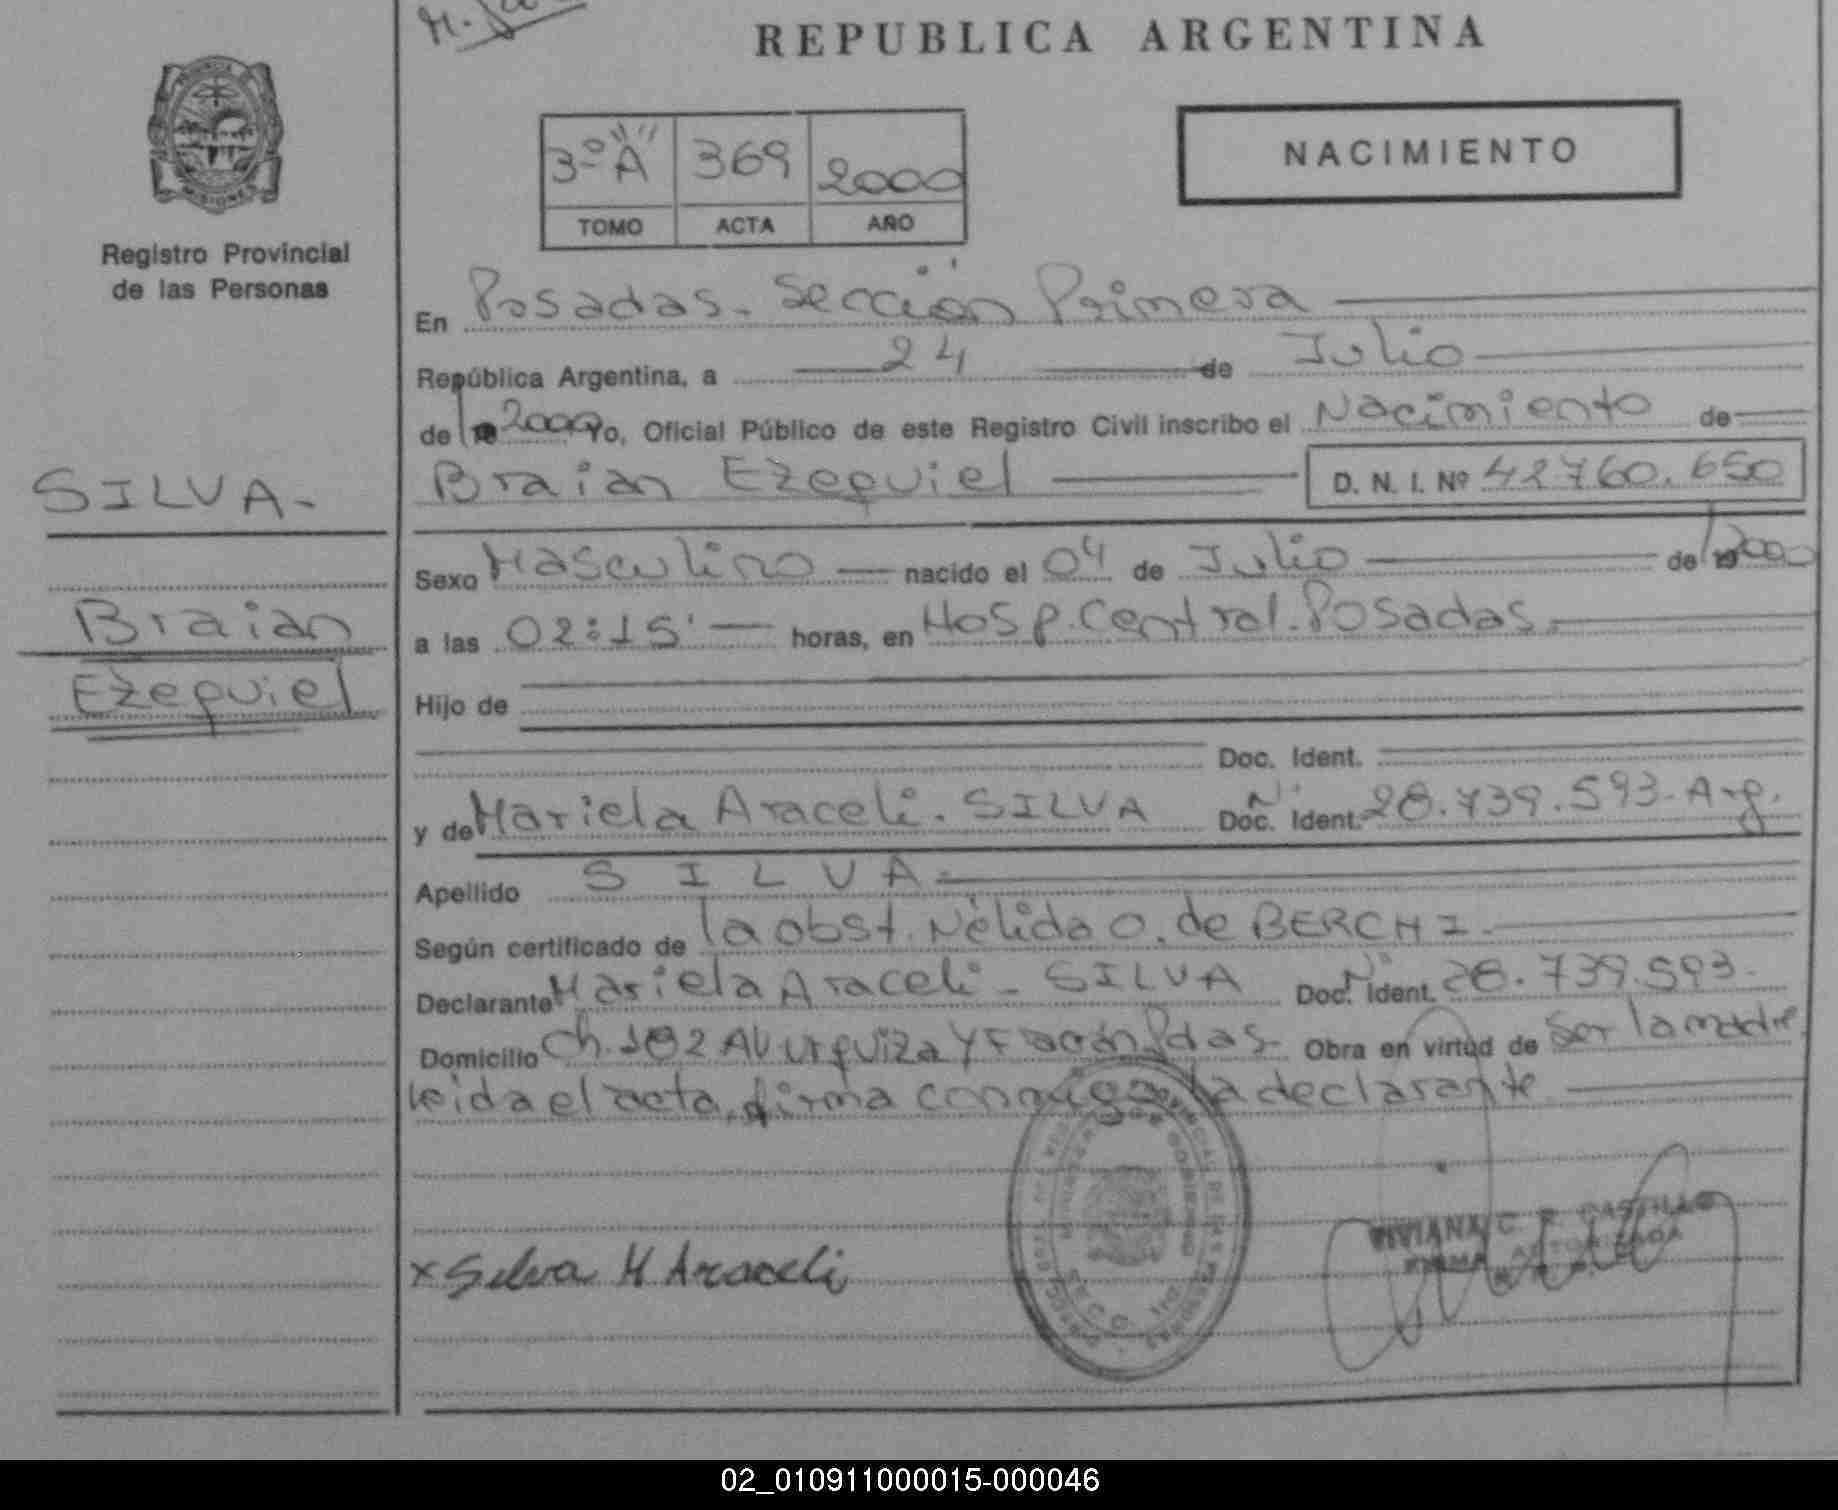 REPUBLICA ARGENTINA
3º "A" 369 2000
TOMO ACTA AÑO
NACIMIENTO
Registro Provincial
de las Personas
SILVA-
Braian
Ezequiel
En Posadas. Sección Primera
República Argentina, a 24 de Julio
de 2000 Yo, Oficial Público de este Registro Civil inscribo el Nacimiento de
Braian Ezequiel D. N. I. Nº 42760.650
Sexo Masculino nacido el 04 de Julio de 2000
a las 02:15' horas, en Hosp. Central. Posadas.
Hijo de
Doc. Ident.
y de Mariela Araceli. SILVA Nº Doc. Ident. 28.739.593-Arg.
Apellido SILVA.
Según certificado de la obst. Nélida O. de BERCHI.
Declarante Mariela Araceli - SILVA Nº Doc. Ident. 28.739.593.
Domicilio Ch. 182 AV Urquiza Y Pdas- Obra en virtud de Ser la madre.
leida el acta, firma conmigo la declarante.
x Silva M Araceli
VIVIANA C. CASTILLO
FIRMA AUTORIZADA
02_010911000015-000046